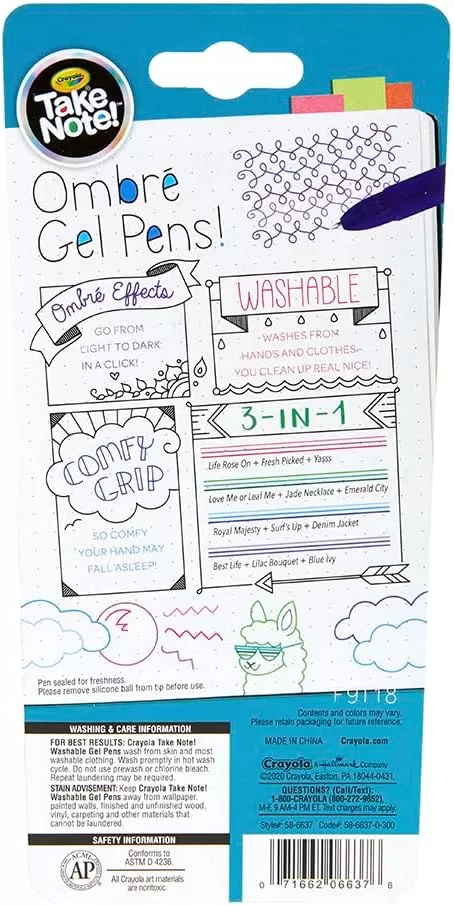 Crayola
Take
Note!™
Ombré
Gel Pens!
Ombré Effects
GO FROM
LIGHT TO DARK
IN A CLICK!
WASHABLE
WASHES FROM
HANDS AND CLOTHES.
YOU CLEAN UP REAL NICE!
COMFY
GRIP
SO COMFY
YOUR HAND MAY
FALL ASLEEP!
3-IN-1
Life Rose On + Fresh Picked + Yasss
Love Me or Leaf Me + Jade Necklace + Emerald City
Royal Majesty + Surf's Up + Denim Jacket
Best Life + Lilac Bouquet + Blue Ivy
Pen sealed for freshness.
Please remove silicone ball from tip before use.
F9118
Contents and colors may vary.
Please retain packaging for future reference.
WASHING & CARE INFORMATION
FOR BEST RESULTS: Crayola Take Note!
Washable Gel Pens wash from skin and most
washable clothing. Wash promptly in hot wash
cycle. Do not use prewash or chlorine bleach.
Repeat laundering may be required.
STAIN ADVISEMENT: Keep Crayola Take Note!
Washable Gel Pens away from wallpaper,
painted walls, finished and unfinished wood,
vinyl, carpeting and other materials that
cannot be laundered.
SAFETY INFORMATION
ACMI
AP
Conforms to
ASTM D 4236.
All Crayola art materials
are nontoxic.
MADE IN CHINA Crayola.com
Crayola A Hallmark Company
©2020 Crayola, Easton, PA 18044-0431.
QUESTIONS? (Call/Text):
1-800-CRAYOLA (800-272-9652),
M-F, 9 AM-4 PM ET. Text charges may apply.
Style#: 58-6637 Code#: 58-6637-0-300
0 71662 06637 6